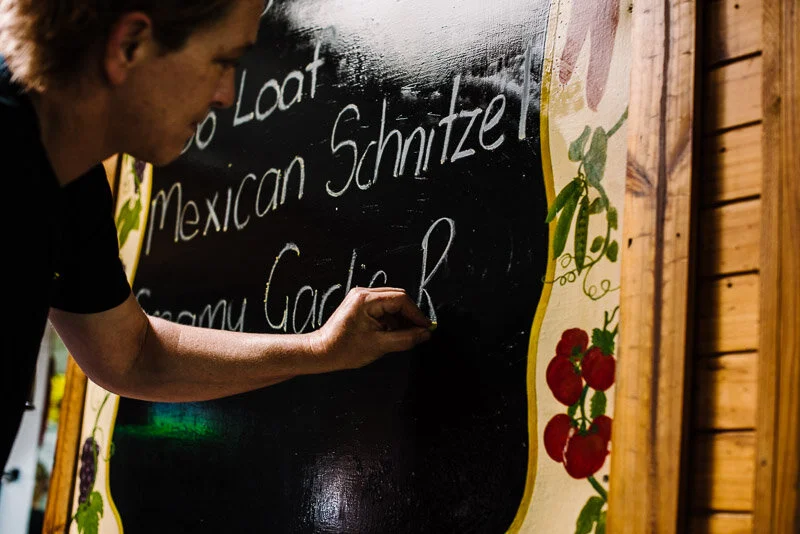 Loaf
Mexican Schnitzel
Creamy Garlic R